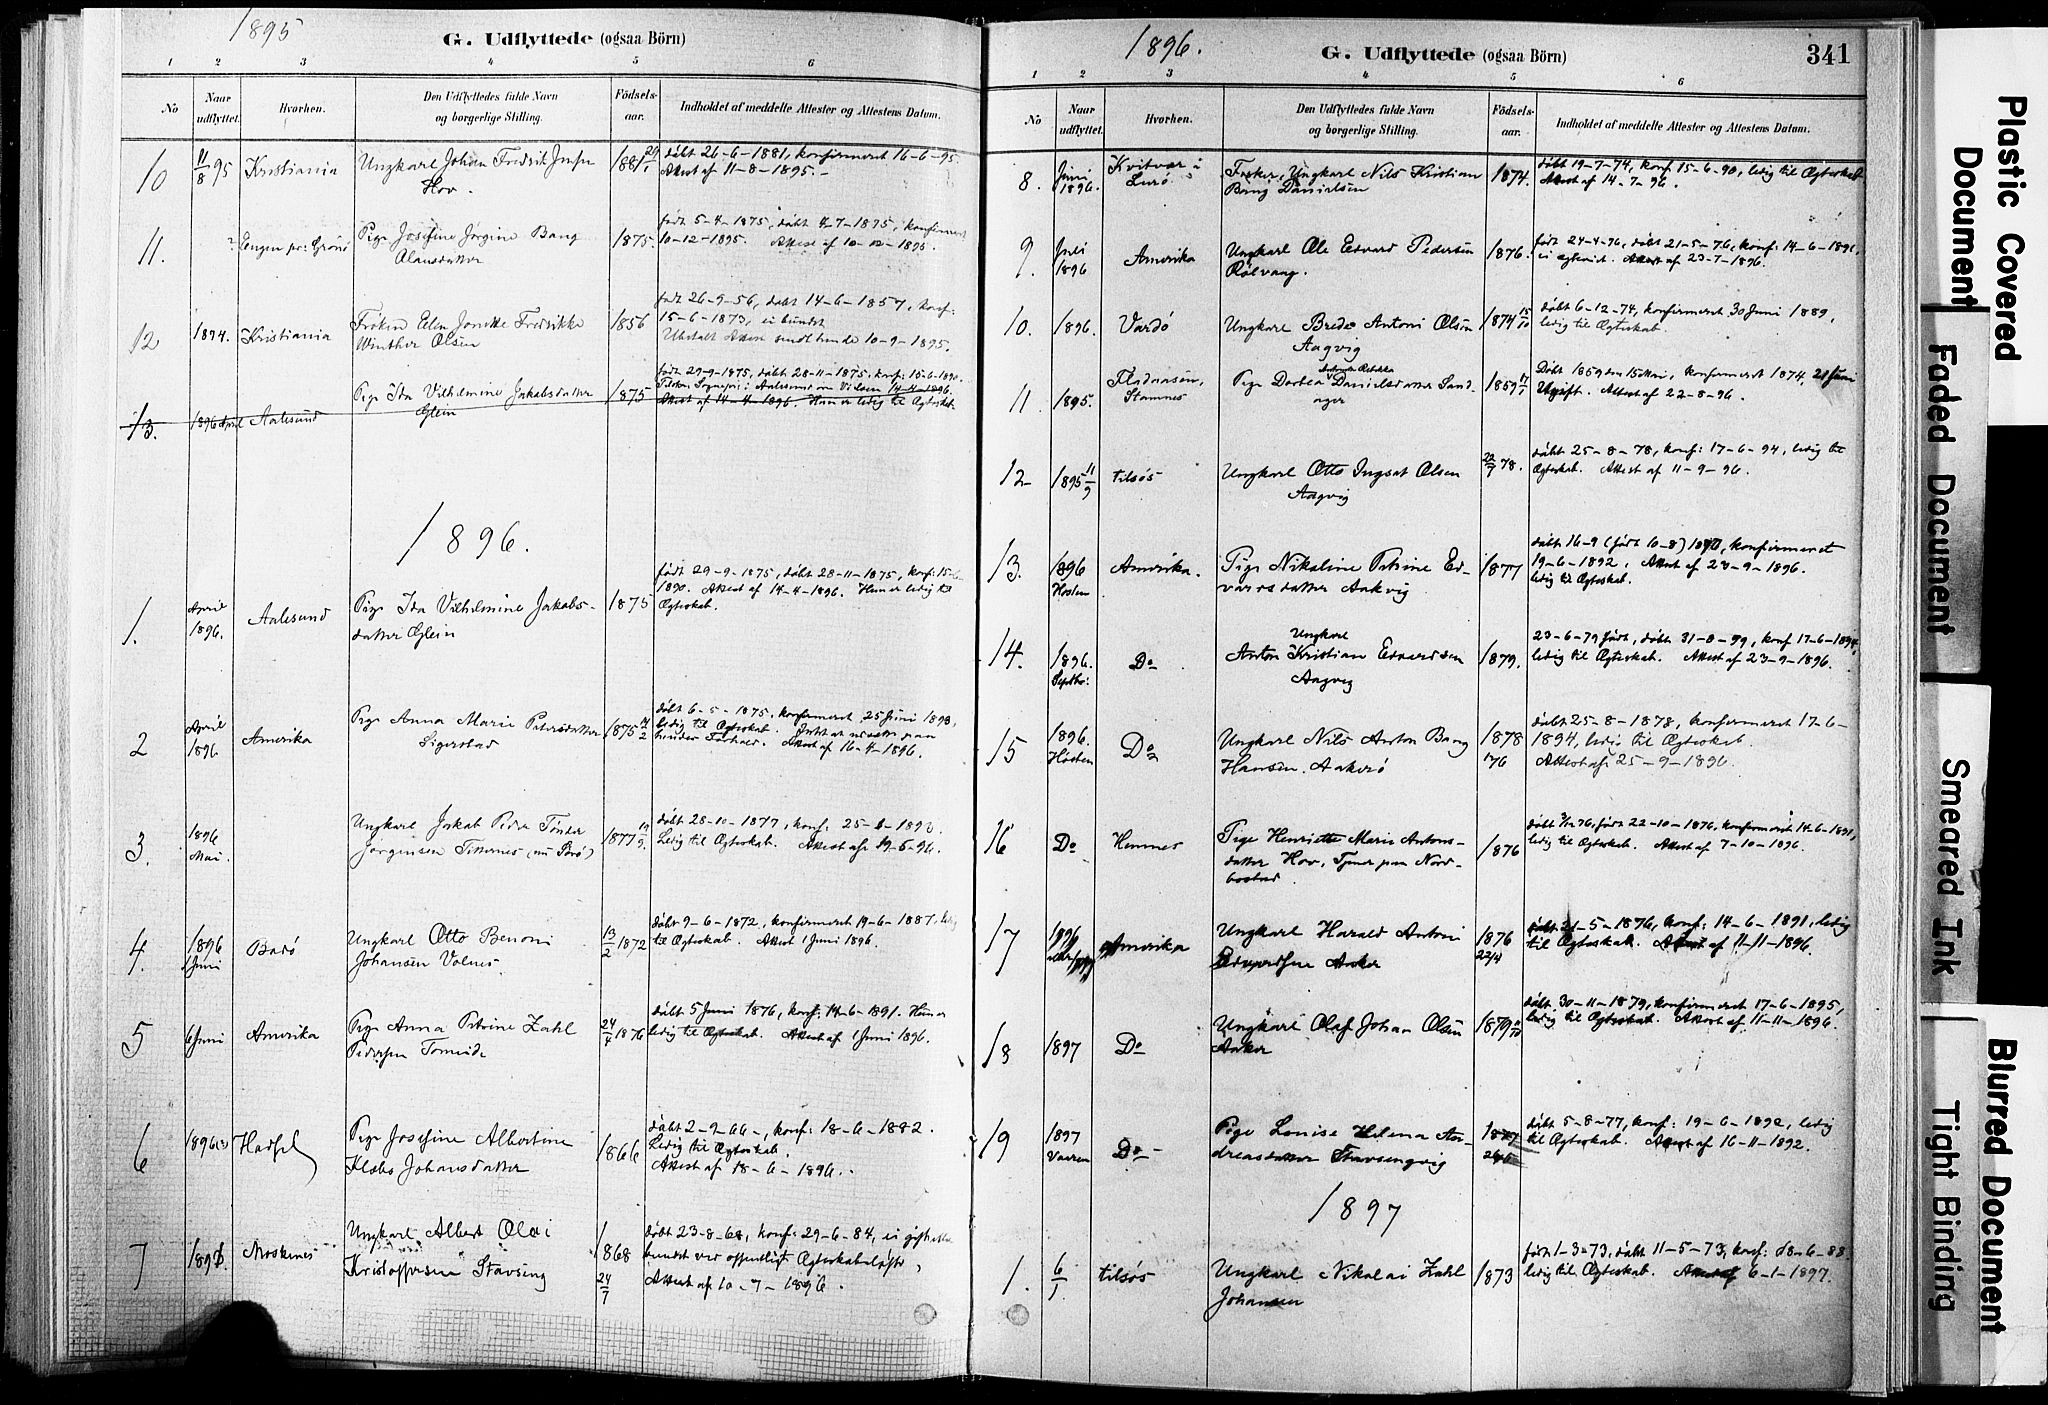 1895
G. Udflyttede (ogsaa Börn)
1 2 3 4 5 6
No
Naar udflyttet.
Hvorhen.
Den Udflyttedes fulde Navn og borgerlige Stilling.
Födsels-aar.
Indholdet af meddelte Attester og Attestens Datum.
10 11/8 95 Kristiania Ungkarl Johan Fredrik Jensen 1881 döbt 26-6-1881, konfirmeret 16-6-95.
Hov. Attest af 11-8-1895.-
11. ? Engen pr: Grönö Pige Josefine Jörgine Bang 1875. født 5-4-1875, döbt 4-7-1875, konfirmeret
Olausdatter 10-12-1895. Attest af 10-12-1895.
12 1894. Kristiania Fröken Elen Jonette Fredrikke 1856 født 26-9-56, döbt 14-6-1857, konf:
Winther Olsen 15-6-1873, ei bundet
Attest sendt hende 10-9-1895.
13. 1896 April Aalesund Pige Ida Vilhelmine Jakobsdatter 1875 født 29-9-1875, döbt 28-11-1875, konf: 15-6-1890.
Glein Attest af 14-4-1896. Hun er ledig til Ægteskab.
1896.
1. April 1896. Aalesund Pige Ida Vilhelmine Jakobs- 1875 født 29-9-1875, döbt 28-11-1875, konf: 15-6
datter Glein 1890. Attest af 14-4-1896. Hun er ledig til
Ægteskab.
2 April 1896 Amerika Pige Anna Marie Petersdatter 1875 döbt 6-5-1875, konfirmeret 25 Juni 1893,
Sigerstad ledig til Ægteskab.
Attest af 16-4-1896.
3. 1896 Mai. Ungkarl Jakob Peder Tönder 1877 döbt 28-10-1877, konf: 25-6-1893.
Jörgensen Titternes (nu Borö) Ledig til Ægteskab. Attest af 19-5-96.
4. 1896 1 Juni Bodö Ungkarl Otto Benoni 13/2 1872 döbt 9-6-1872, konfirmeret 19-6-1887, ledig
Johansen Volnes. til Ægteskab. Attest 1 Juni 1896.
5 6 Juni Amerika Pige Anna Petrine Zahl 24/4 1876 döbt 5 Juni 1876, konf: 14-6-1891. Hun er
Pedersen Tomeide ledig til Ægteskab. Attest af 1 Juni 1896.
6 1896 Hadsel Pige Josefine Albertine 1866 döbt 2-9-66-, konf: 18-6-1882.
Klæbo Johansdatter Ledig til Ægteskab.
Attest af 18-6-1896.-
7 Moskenes Ungkarl Albert Olai 1868 24/7 döbt 23-8-68, konf: 29-6-84, ei gift eller
Kristoffersen Stavseng bundet ved offentligt Ægteskabsløfte,
Attest af 10-7-1896.
1896.
G. Udflyttede (ogsaa Börn)
341
1 2 3 4 5 6
No
Naar udflyttet.
Hvorhen.
Den Udflyttedes fulde Navn og borgerlige Stilling.
Födsels-aar.
Indholdet af meddelte Attester og Attestens Datum.
8. Juni 1896. Kvitvær i Lurö Fisker, Ungkarl Nils Kristian 1874. döbt 19-7-74, konf 15-6-90, ledig til Ægteskab
Bang Danielsen Attest af 14-7-96.
9. Juli 1896 Amerika Ungkarl Ole Edvard Pedersen 1876. født 24-4-76, döbt 21-5-76, konf: 14-6-1891.
Rölvaag. Attest af 23-7-1896.
10. 1896. Vardö Ungkarl Brede Antoni Olsen 1874 15/10 döbt 6-12-74, konfirmeret 30 Juni 1889,
Aagvig ledig til Ægteskab.
11. 1895. Stamnes Pige Dorthea Danielsdatter Sand- 1859 Döbt 1859 den 15 Mai, konfirmeret 1874, 21 Juni
ager Ugift. Attest af 22-8-96.
12 1895 11/9 tilsös Ungkarl Otto Ingvat Olsen 22/7 78. döbt 25-8-78, konf: 17-6-94, ledig til
Aagvig Ægteskab. Attest af 11-9-96.
13. 1896 Hösten Amerika. Pige Nikoline Petrine Ed- 1877 döbt 16-9 (født 10-8) 1877, konfirmeret
vardsdatter Aakvig 19-6-1892, Attest af 23-9-1896.
ledig til Ægteskab.
14. 1896. Septbr: Do Ungkarl
Anton Kristian Edvardsen 1879. 23-6-79 født, döbt 31-8-79, konf 17-6-1894,
Aagvig ledig til Ægteskab. Attest af 23-9-1896.
15 1896. Hösten Do Ungkarl Nils Anton Bang 1878 döbt 25-8-1878, konfirmeret 17-6-
Hansen. Aakerö 1894, ledig til Ægteskab.
Attest af 25-9-1896.
16 Do Hemnes Pige Henriette Marie Antons- 1876 født 22-10-1876, konfirmeret 14-6-1891,
datter Hov, Tjener paa Nord- ledig til Ægteskab. Attest af 7-10-1896.
bostad
17 1896 Amerika Ungkarl Harald Antoni 1876 22/4 döbt 21-5-1876, konf: 14-6-1891, ledig
Edvardsen Aaker til Ægteskab. Attest af 11-11-1896.
18 1897 Do Ungkarl Olaf Johan Olsen 1879 döbt 30-11-1879, konfirmeret 17-6-1895,
Aaker ledig til Ægteskab. Attest af 11-11-1896.
19 1897 Vaaren Do- Pige Louise Helena An- 1877 döbt 5-8-77, konf: 19-6-1892, ledig
dreasdatter Stavsengvig til Ægteskab. Attest af 16-11-1892.
1897
1. 6/1 tilsös Ungkarl Nikolai Zahl 1873 født 1-3-73, döbt 11-5-73, konf: 18-6-88.
Johansen ledig til Ægteskab. Attest af 6-1-1897.
Plastic Covered Document
Faded Document
Smeared Ink
Blurred Document
Tight Binding